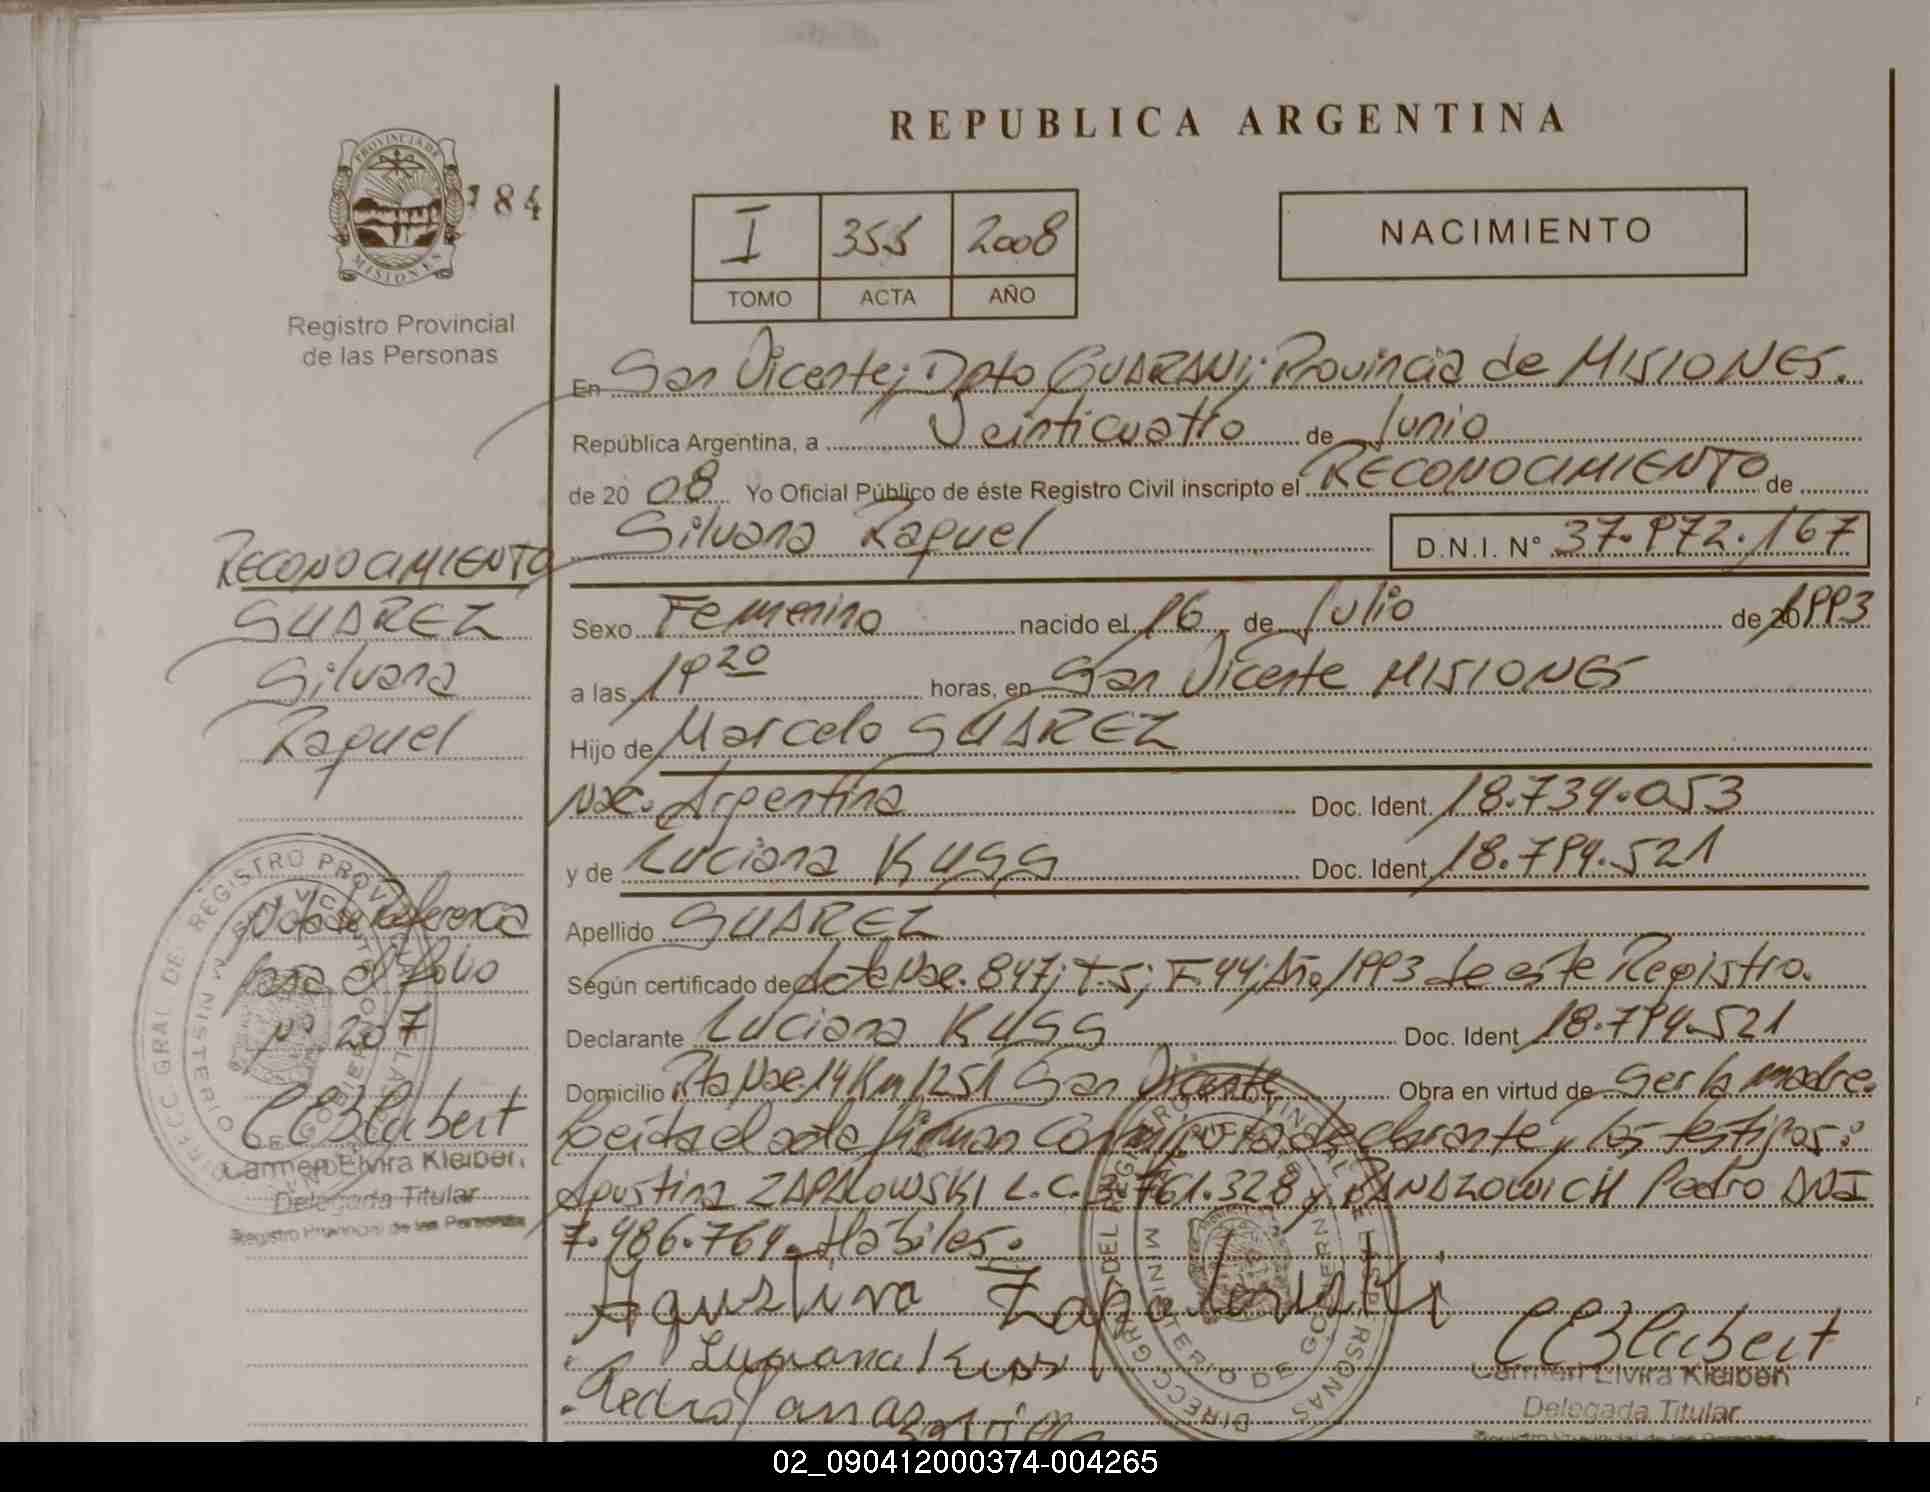 REPUBLICA ARGENTINA
PROVINCIA DE MISIONES
184
Registro Provincial
de las Personas
I 355 2008
TOMO ACTA AÑO
NACIMIENTO
En San Vicente; Dpto GUARANI; Provincia de MISIONES.
República Argentina, a Veinticuatro de Junio
de 20 08 Yo Oficial Público de éste Registro Civil inscripto el RECONOCIMIENTO de
Silvana Raquel D.N.I. N° 37.972.167
Sexo Femenino nacido el 16 de Julio de 20 1993
a las 19 20 horas, en San Vicente MISIONES
Hijo de Marcelo SUAREZ
Nac. Argentina Doc. Ident. 18.734.053
y de Luciana KUSS Doc. Ident. 18.794.521
Apellido SUAREZ
Según certificado de Acta Nac. 847; T-5; F.44; Año 1993 de este Registro.
Declarante Luciana KUSS Doc. Ident 18.794.521
Domicilio Rta Nac. 14 Km 1251 San Vicente Obra en virtud de ser la madre.
Leída el acta firman conmigo la declarante y los testigos:
Agustina ZAPALOWSKI L.C. 3.761.328 y Pedro DNI
7.486.764. Hábiles.
Agustina Zapalowski
Luciana Kuss
Pedro
Carmen Elvira Kleiben
Delegada Titular
RECONOCIMIENTO
SUAREZ
Silvana
Raquel
Nota de Referencia
para el folio
N° 207
Carmen Elvira Kleiben
Delegada Titular
Registro Provincial de las Personas
02_090412000374-004265